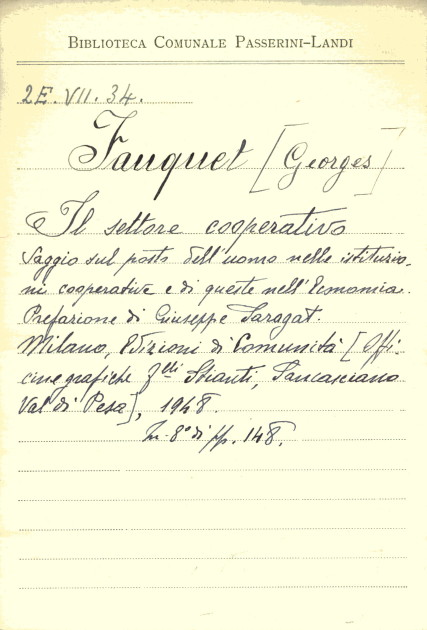 BIBLIOTECA COMUNALE PASSERINI-LANDI
2E. VII. 34.
Fauquet [Georges]
Il settore cooperativo
Saggio sul posto dell'uomo nelle istituzio-
ni cooperative e di queste nell'Economia.
Prefazione di Giuseppe Saragat.
Milano, Edizioni di Comunità [Offi-
cine grafiche F.lli Stianti, Sancasciano
Val di Pesa], 1948.
In-8° di pp. 148.